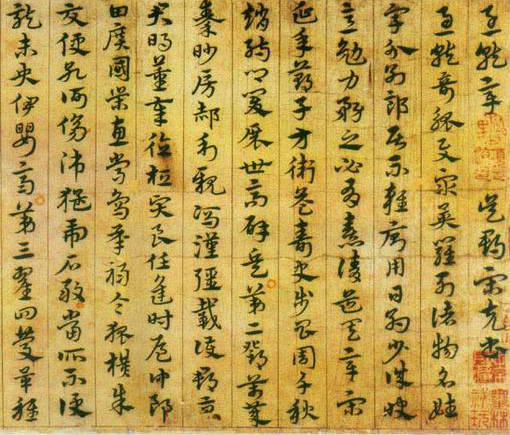 急就章 吳郡宋克書
急就奇觚與衆異羅列諸物名姓
字分別部居不雜廁用日約少誠快
意勉力務之必有憙請道其章宋
延年鄭子方衛益壽史步昌周千秋
趙孺卿爰展世高辟兵第二鄧萬歲
秦妙房郝利親馮漢彊戴護郡景
君明董奉德桓賢良任逢時侯仲郎
由廣國榮惠常烏承祿令狐橫朱
交便孔何傷師猛虎石敢當所不侵
龍未央伊嬰齊第三翟回慶畢稚